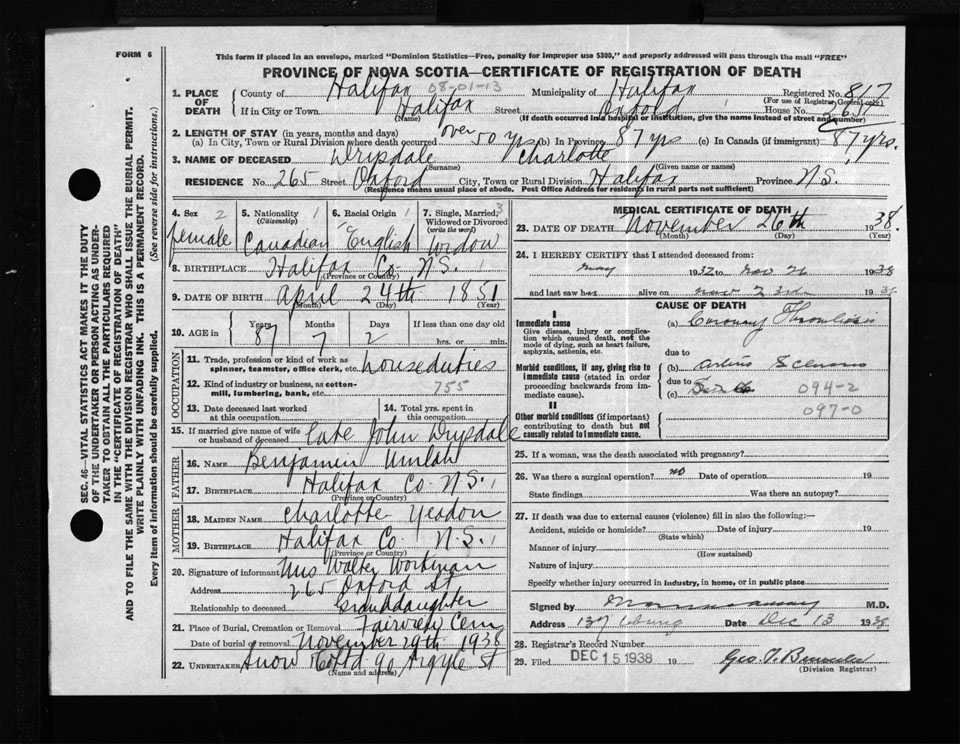 FORM 6
This form if placed in an envelope, marked "Dominion Statistics—Free, penalty for improper use $300," and properly addressed will pass through the mail "FREE"
PROVINCE OF NOVA SCOTIA—CERTIFICATE OF REGISTRATION OF DEATH
1. PLACE OF DEATH
County of Halifax 08-01-13 Municipality of Halifax Registered No. 817
(For use of Registrar General only)
If in City or Town Halifax Street Oxford House No. 265
(Name) (If death occurred in a hospital or institution, give the name instead of street and number)
2. LENGTH OF STAY (in years, months and days)
(a) In City, Town or Rural Division where death occurred over 50 yrs (b) In Province 87 yrs (c) In Canada (if immigrant) 87 yrs.
3. NAME OF DECEASED Drysdale Charlotte
(Surname) (Given name or names)
RESIDENCE No. 265 Street Oxford City, Town or Rural Division Halifax Province N.S.
(Residence means usual place of abode. Post Office Address for residents in rural parts not sufficient)
4. Sex 2 female
5. Nationality (Citizenship) 1 Canadian
6. Racial Origin 1 English
7. Single, Married, Widowed or Divorced (write the word) 3 Widow
8. BIRTHPLACE Halifax Co. N.S. 1
(Province or Country)
9. DATE OF BIRTH April 24th 1851
(Month) (Day) (Year)
10. AGE in Years 87 Months 7 Days 2 If less than one day old hrs. or min.
OCCUPATION
11. Trade, profession or kind of work as spinner, teamster, office clerk, etc. house duties
12. Kind of industry or business, as cotton-mill, lumbering, bank, etc. 755
13. Date deceased last worked at this occupation
14. Total yrs. spent in this occupation
15. If married give name of wife or husband of deceased Late John Drysdale
FATHER
16. NAME Benjamin Umlah
17. BIRTHPLACE Halifax Co. N.S. 1
(Province or Country)
MOTHER
18. MAIDEN NAME Charlotte Yeadon
19. BIRTHPLACE Halifax Co. N.S. 1
(Province or Country)
20. Signature of informant Mrs Walter Workman
Address 265 Oxford St
Relationship to deceased Granddaughter
21. Place of Burial, Cremation or Removal Fairview Cem
Date of burial or removal November 29th 1938
22. UNDERTAKER Snow Co Ltd 90 Argyle St
(Name and address)
MEDICAL CERTIFICATE OF DEATH
23. DATE OF DEATH November 26th 1938.
(Month) (Day) (Year)
24. I HEREBY CERTIFY that I attended deceased from:
May 1932 to Nov 26 1938
and last saw h alive on Nov 23rd 1938
CAUSE OF DEATH
I
Immediate cause
Give disease, injury or complication which caused death, not the mode of dying, such as heart failure, asphyxia, asthenia, etc.
(a) Coronary Thrombosis
due to
Morbid conditions, if any, giving rise to immediate cause (stated in order proceeding backwards from immediate cause).
(b) Arterio Sclerosis
due to
(c) 094-2
II
097-0
Other morbid conditions (if important) contributing to death but not causally related to immediate cause.
25. If a woman, was the death associated with pregnancy?
26. Was there a surgical operation? no Date of operation 19
State findings Was there an autopsy?
27. If death was due to external causes (violence) fill in also the following:—
Accident, suicide or homicide? Date of injury 19
(State which)
Manner of injury
(How sustained)
Nature of injury
Specify whether injury occurred in industry, in home, or in public place
Signed by M.D.
Address 137 Date Dec 13 1938
28. Registrar's Record Number
29. Filed DEC 15 1938 19 Geo. T.
(Division Registrar)
SEC. 46—VITAL STATISTICS ACT MAKES IT THE DUTY
OF THE UNDERTAKER OR PERSON ACTING AS UNDERTAKER TO OBTAIN ALL THE PARTICULARS REQUIRED
IN THE "CERTIFICATE OF REGISTRATION OF DEATH"
AND TO FILE THE SAME WITH THE DIVISION REGISTRAR WHO SHALL ISSUE THE BURIAL PERMIT.
WRITE PLAINLY WITH UNFADING INK. THIS IS A PERMANENT RECORD.
Every item of information should be carefully supplied. (See reverse side for instructions.)